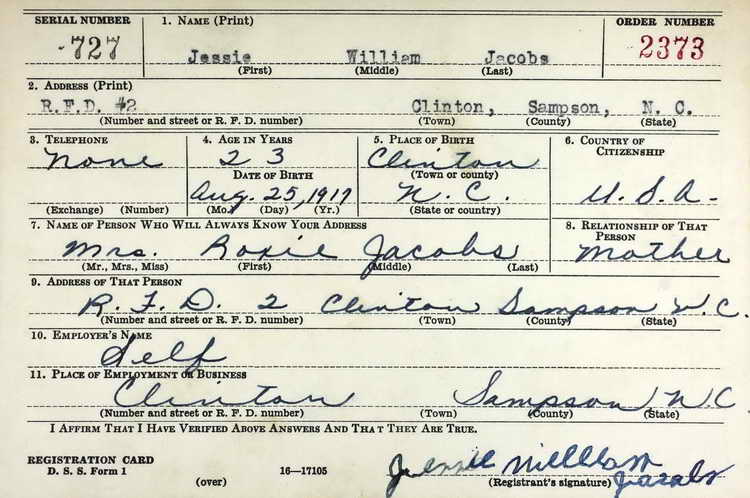 SERIAL NUMBER 1. NAME (Print) ORDER NUMBER
-727 Jessie William Jacobs 2373
(First) (Middle) (Last)
2. ADDRESS (Print)
R.F.D. #2 Clinton, Sampson, N. C.
(Number and street or R. F. D. number) (Town) (County) (State)
3. TELEPHONE 4. AGE IN YEARS 5. PLACE OF BIRTH 6. COUNTRY OF
CITIZENSHIP
None 23 Clinton
DATE OF BIRTH (Town or county)
Aug. 25, 1917 N.C. U.S.A.
(Exchange) (Number) (Mo.) (Day) (Yr.) (State or country)
7. NAME OF PERSON WHO WILL ALWAYS KNOW YOUR ADDRESS 8. RELATIONSHIP OF THAT
PERSON
Mrs. Roxie Jacobs Mother
(Mr., Mrs., Miss) (First) (Middle) (Last)
9. ADDRESS OF THAT PERSON
R. F. D. 2 Clinton Sampson N.C.
(Number and street or R. F. D. number) (Town) (County) (State)
10. EMPLOYER'S NAME
Self
11. PLACE OF EMPLOYMENT OR BUSINESS
Clinton Sampson N.C.
(Number and street or R. F. D. number) (Town) (County) (State)
I AFFIRM THAT I HAVE VERIFIED ABOVE ANSWERS AND THAT THEY ARE TRUE.
REGISTRATION CARD
D. S. S. Form 1 (over) 16—17105 (Registrant's signature) Jacobs